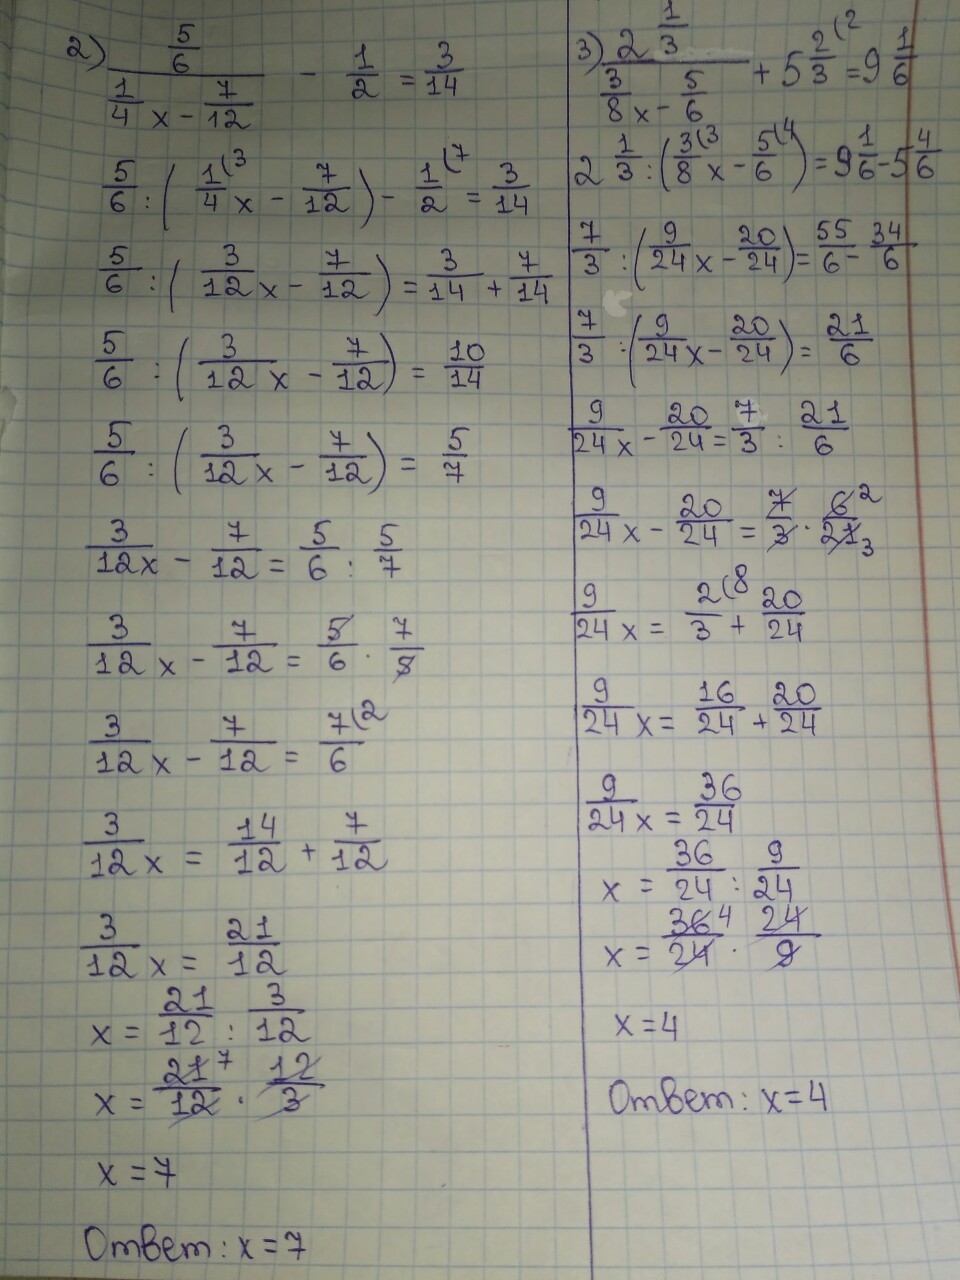 2) 5/6 / (1/4 x - 7/12) - 1/2 = 3/14
5/6 : ( 1/4(3 x - 7/12 ) - 1/2(7 = 3/14
5/6 : ( 3/12 x - 7/12 ) = 3/14 + 7/14
5/6 : ( 3/12 x - 7/12 ) = 10/14
5/6 : ( 3/12 x - 7/12 ) = 5/7
3/12 x - 7/12 = 5/6 : 5/7
3/12 x - 7/12 = 5/6 · 7/5
3/12 x - 7/12 = 7/6(2
3/12 x = 14/12 + 7/12
3/12 x = 21/12
x = 21/12 : 3/12
x = 21 7/12 · 12/3
x = 7
Ответ: x = 7
3) 2 1/3 / (3/8 x - 5/6) + 5 2/3(2 = 9 1/6
2 1/3 : ( 3/8(3 x - 5/6(4 ) = 9 1/6 - 5 4/6
7/3 : ( 9/24 x - 20/24 ) = 55/6 - 34/6
7/3 : ( 9/24 x - 20/24 ) = 21/6
9/24 x - 20/24 = 7/3 : 21/6
9/24 x - 20/24 = 7/3 · 6 2/21 3
9/24 x = 2/3(8 + 20/24
9/24 x = 16/24 + 20/24
9/24 x = 36/24
x = 36/24 : 9/24
x = 36 4/24 · 24/9
x = 4
Ответ: x = 4